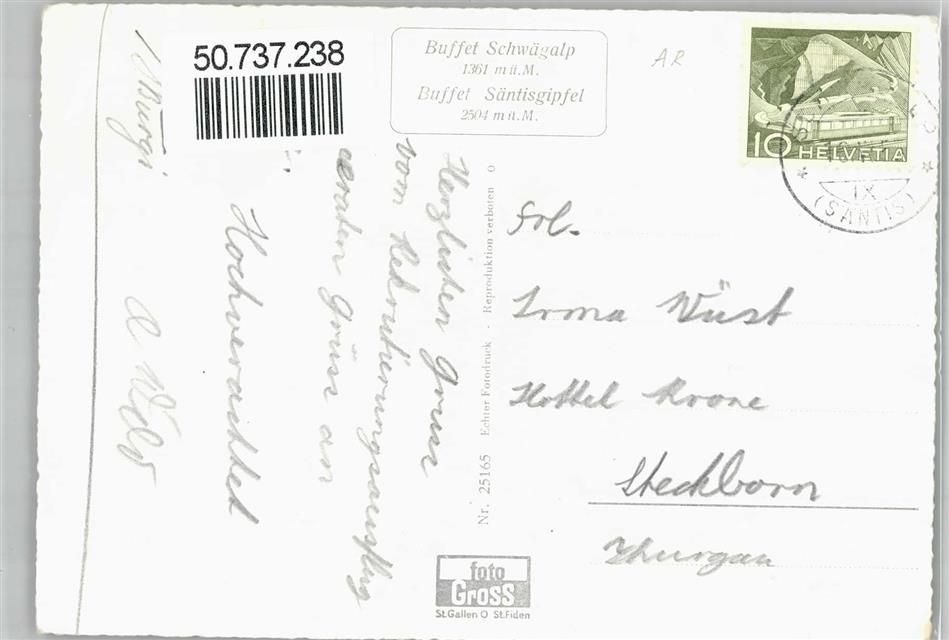 50.737.238
Buffet Schwägalp
1361 m ü. M.
Buffet Säntisgipfel
2504 m ü. M.
AR
10 HELVETIA
IX
(SÄNTIS)
Herzlichen Gruss
vom Rekrutierungsausflug
Gruss an
Nr. 25165 Echter Fotodruck - Reproduktion verboten O
Frl.
Irma Wüst
Hottel Krone
Steckborn
Thurgau
foto
Gross
St.Gallen O St.Fiden